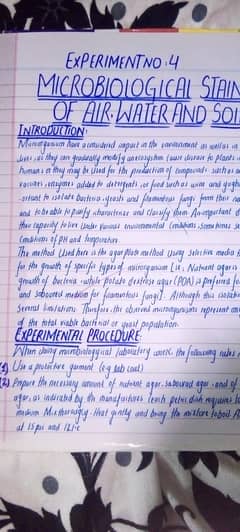 EXPERIMENT NO: 4
MICROBIOLOGICAL STAIN
OF AIR, WATER AND SOI
INTRODUCTION:
Microorganism have a considered impact in the environment as well as in
lives, as they can gradually modify an ecosystem (cause disease to plants
humans or they may be used for the production of compound such as
vaccines, enzymes added to detergents, or food such as wine and yoghu
to isolate bacteria, yeasts and filamentous fungi form their na
and to be able to purify, characterize and classify them. An important
their capacity to live under various environmental conditions, sometimes
Conditions of PH and temperature.
The method used here is the agar plate method using selective media
for the growth of specific types of microorganism [i.e; Nutrient agar is
growth of bacteria, while potato dextrose agar (PDA) is preferred fo
and sabouraud medium for filamentous fungi]. Although this isolatio
several limitations; Therefore, the observed microorganisms represent
of the total viable bacterial or yeast population.
EXPERIMENTAL PROCEDURE:
When doing microbiological laboratory work, the following rules
(1) Use a protective garment (e.g lab coat)
(2) Prepare the necessary amount of nutrient agar, sabouraud agar, and of
agar, as indicated by the manufactures (each petri dish requires
medium. Mix thoroughly, that gently and bring the mixture to boil.
at 15psi and 121°c